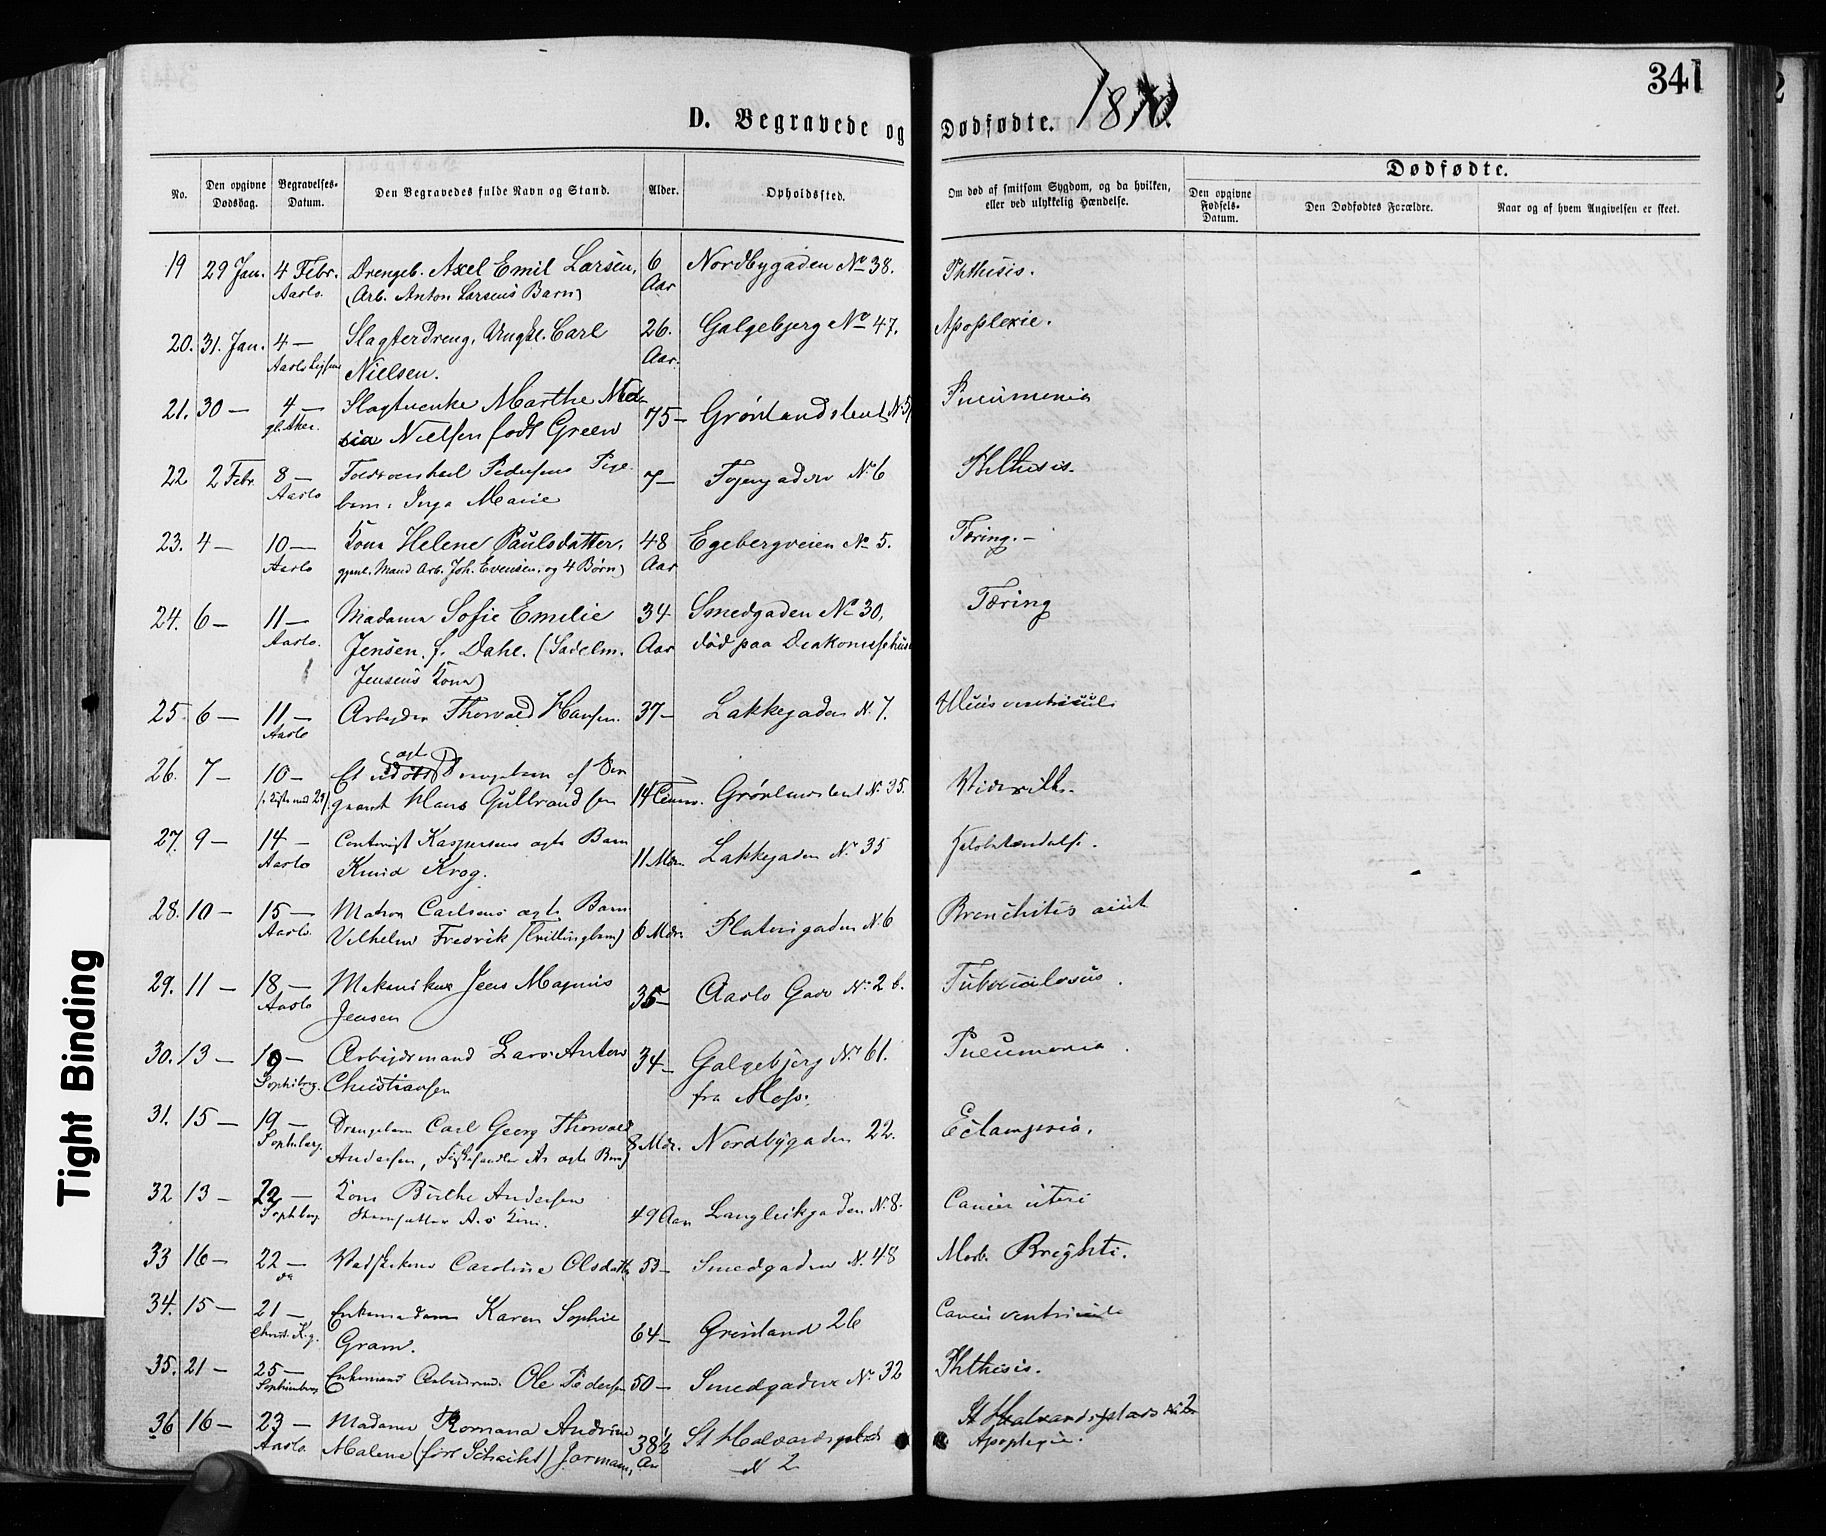 341
D. Begravede og Dødfødte. 1870.
No.
Den opgivne Dødsdag.
Begravelses-Datum.
Den Begravedes fulde Navn og Stand.
Alder.
Opholdssted.
Om død af smitsom Sygdom, og da hvilken, eller ved ulykkelig Hændelse.
Dødfødte.
Den opgivne Fødsels-Datum.
Den Dødfødtes Forældre.
Naar og af hvem Angivelsen er skeet.
19 29 Jan. 4 Febr. Drengeb. Axel Emil Larsen, 6 Nordbygaden No 38. Phthisis.
Aaslo. (Arb. Anton Larsens Barn) Aar
20. 31. Jan. 4 — Slagterdreng, Ungk. Carl 26. Galgebjerg No 47. Apoplexie.
Nielsen. Aar.
21. 30 — 4 — Marthe 75 — Pneumonia
gl. Aker. Nielsen født Green
22 2 Febr. 8 — Pedersens Pige- 7 — Tøjengaden No 6 Phthisis.
Aaslo barn, Inga Marie
23. 4 — 10 — Kone Helene Paulsdatter, 48 Egebergveien No 5. Tæring. —
Aaslo Mand Arb. Joh. Evensen, og 4 Børn) Aar
24. 6 — 11 — Madame Sofie Emilie 34 Smedgaden No 30, Tæring
Aaslo. Jensen f. Dahl. (Sadelm. Aar død paa
Jensens Kone)
25. 6 — 11 — Arbejder Thorvald Hansen. 37 — Lakkegaden N. 7. Ulcus ventriculi
Aaslo
26. 7 — 10 — Et Drengebarn af
Hans Gulbrandsen 14 No 35.
27. 9 — 14 — Kaspersens ægte Barn
Aaslo Knud Krog. 11 Mdr. Lakkegaden No 35
28. 10 — 15 — Carlsens ægte Barn Bronchitis
Aaslo. Vilhelm Fredrik (Tvillingbarn) Mdr. Platousgaden N. 6
29. 11 — 18 — Mekanikus Jens Magnus 35 — Aaslo Gade No 2 b. Tuberculosis
Aaslo Jensen
30. 13 — 19 — Arbejdsmand Lars Anton 34 — Galgebjerg No 61. Pneumonia
Sophibrg. Christiansen fra Moss.
31. 15 — 19 — Drengebarn Carl Georg Thorvald Eclampsia.
Sophibrg. Andersen, Fiskehandler A's ægte Barn) 8 Mdr. Nordbygaden 22.
32 13 — 22 — Kone Birthe Andersen Cancer uteri
Sophibrg 49 Aar Langleikgaden No 8.
33 16 — 22 — Vadskekone Caroline Olsdatter 53 — Smedgaden N. 48 Morb. Brighti.
do
34. 15 — 21 — Enkemadam Karen Sophie Cancer ventriculi
Christ. K.g. Gram. 64 — Grønland 26
35. 21 — 25 — Enkemand Arbeidsmd. Ole Pedersen 50 — Smedgaden No 32 Phthisis.
Sophienberg
36 16 — 23 — Madame Romana Andrine St Halvardsplads No 2
Aaslo. Malene (født Schacht) Jormann, 38½ Aar St Halvardsplads N 2 Apoplexie.
Tight Binding